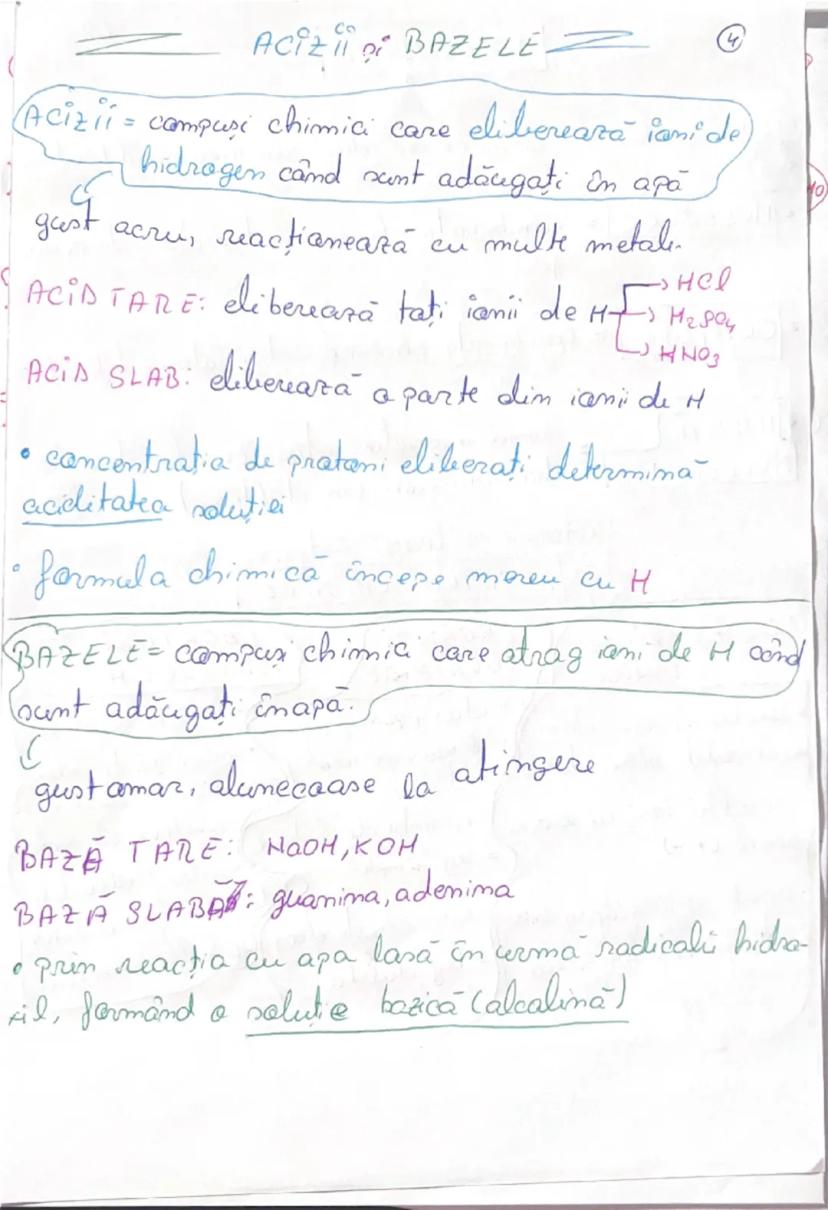 ACIZII și BAZELE
4
ACIZII = compuși chimici care eliberează ioni de
hidrogen când sunt adăugați în apă
gust acru, reacționează cu multe metale.
ACID TARE: eliberează toți ionii de H → HCl
→ H2SO4
→ HNO3
ACID SLAB: eliberează o parte din ionii de H
• concentrația de protoni eliberați determină
aciditatea soluției
• formula chimică începe mereu cu H
BAZELE = compuși chimici care atrag ioni de H când
sunt adăugați în apă.
gust amar, alunecoase la atingere
BAZĂ TARE: NaOH, KOH
BAZĂ SLABĂ: guanina, adenina
• prin reacția cu apa lasă în urmă radicalii hidro-
xil, formând o soluție bazică (alcalină)
10